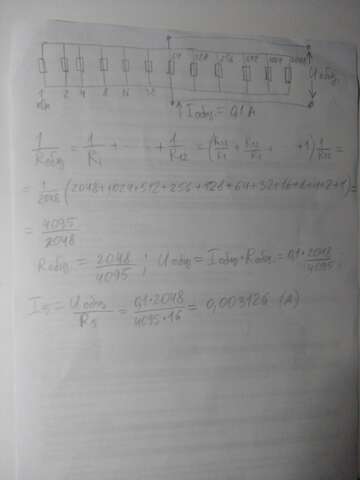 64 128 256 512 1024 2048
1 2 4 8 16 32 Uобщ
Ом
Iобщ = 0,1 A
1/Rобщ = 1/R1 + ··· + 1/R12 = (R12/R1 + R12/R2 + ··· + 1) 1/R12 =
= 1/2048 (2048+1024+512+256+128+64+32+16+8+4+2+1) =
= 4095/2048
Rобщ = 2048/4095 ; Uобщ = Iобщ · Rобщ = 0,1 · 2048/4095 ;
I5 = Uобщ/R5 = 0,1·2048/4095·16 = 0,003126 (A)